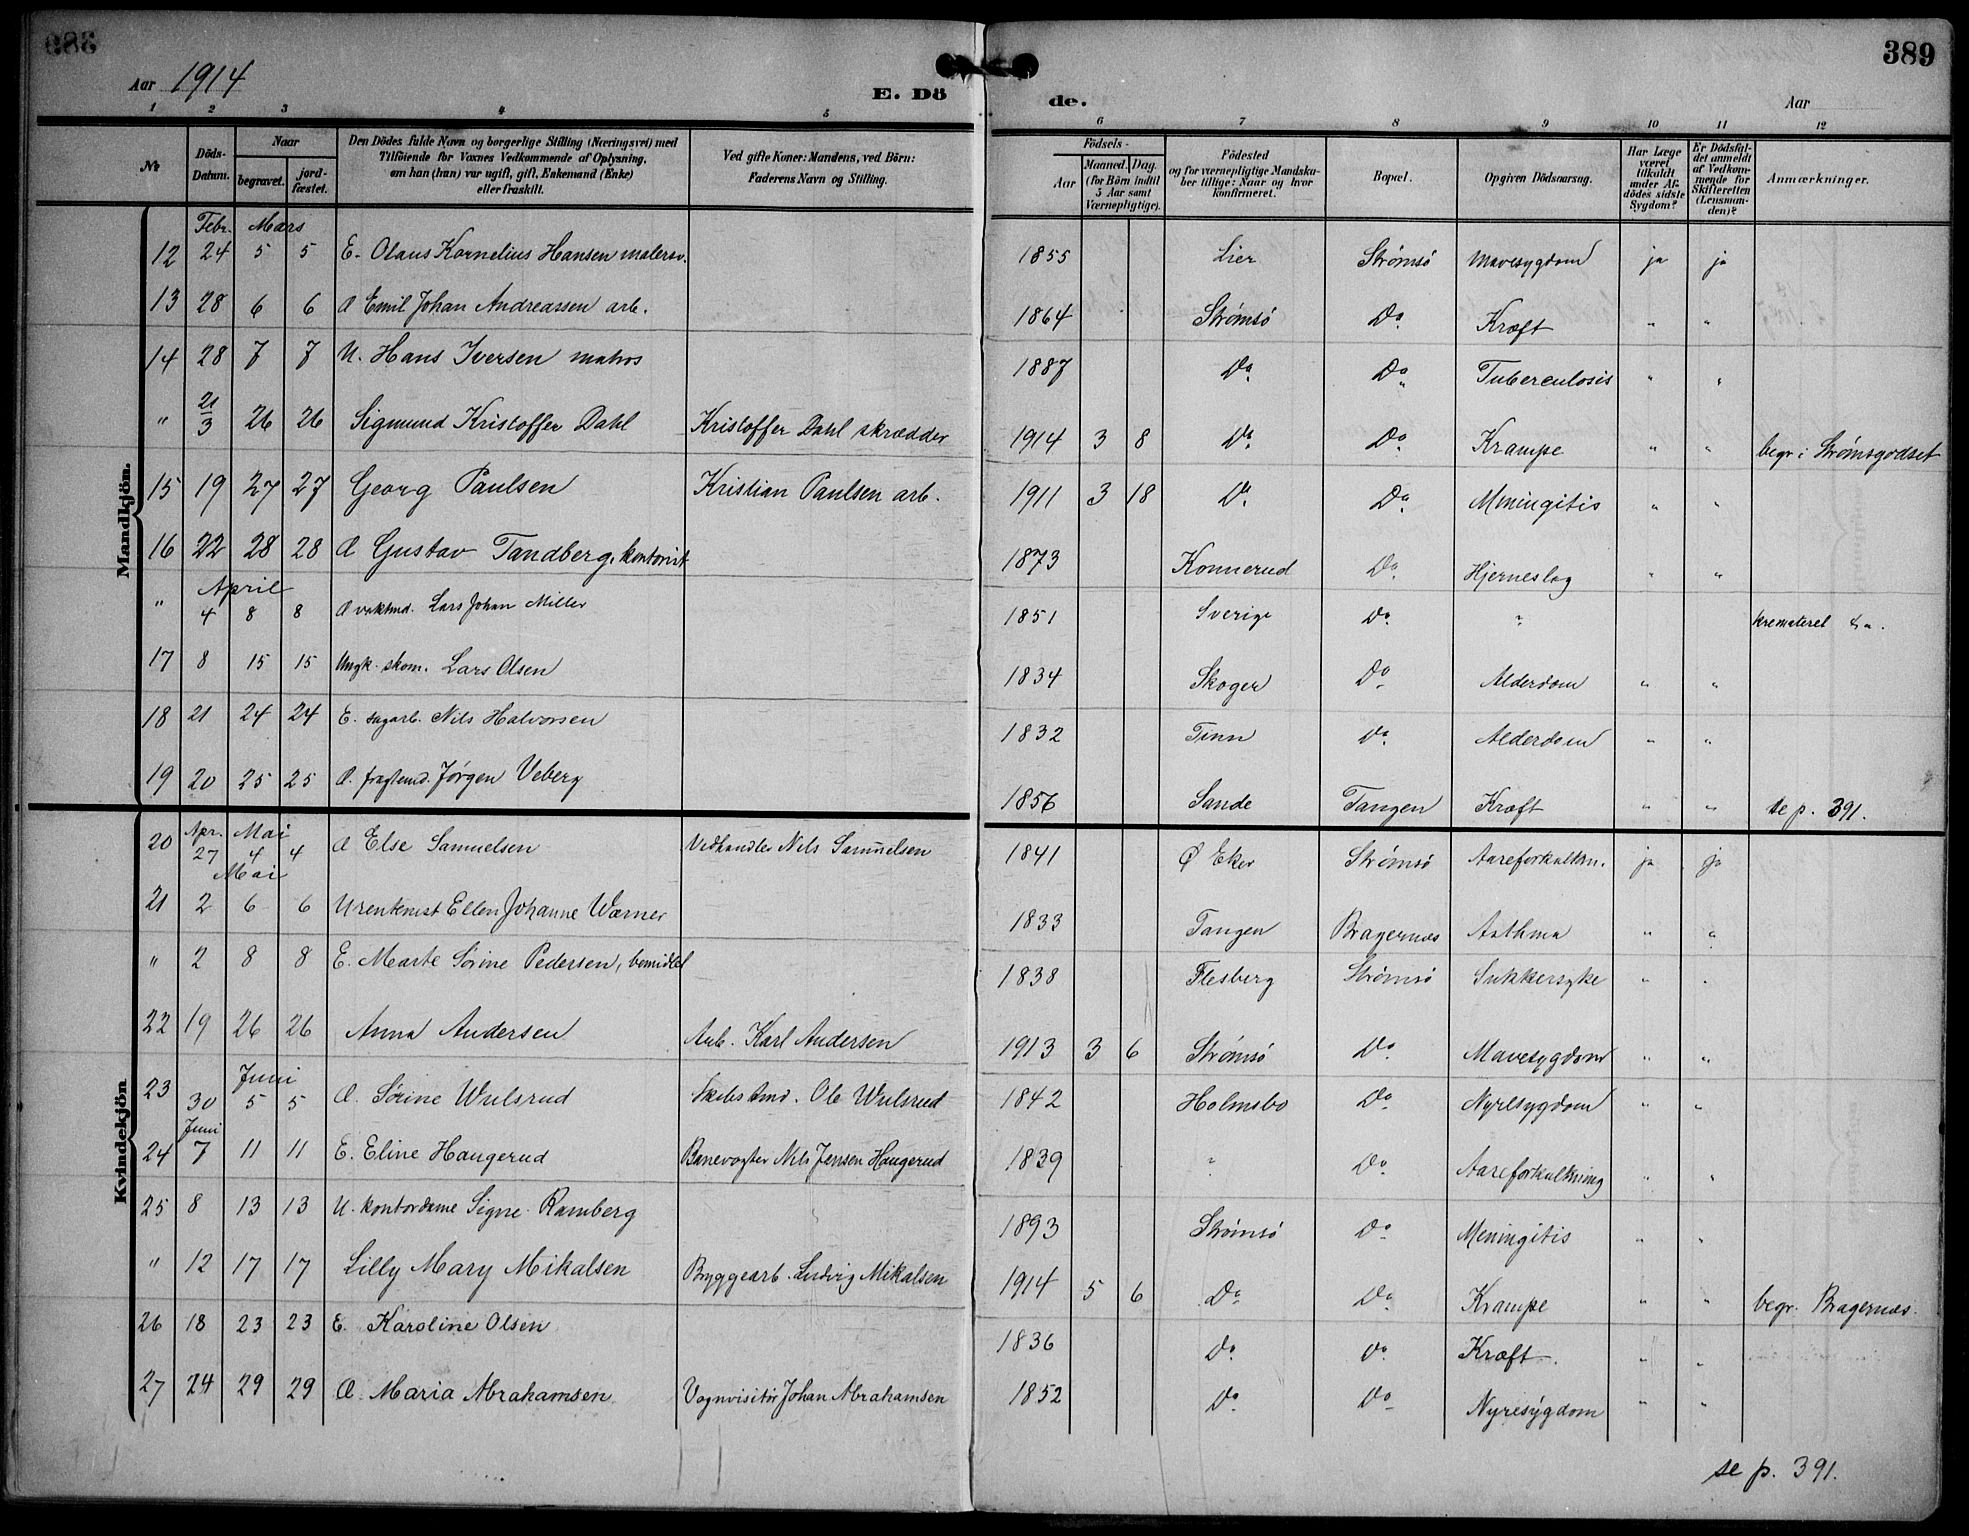 389
Aar 1914
E. Dö
de.
Aar
1 2 3 4 5 6 7 8 9 10 11 12
№
Döds-Datum.
Naar
begravet.
jord-fæstet.
Den Dödes fulde Navn og borgerlige Stilling (Næringsvei) med
Tilföiende for Voxnes Vedkommende af Oplysning,
om han (hun) var ugift, gift, Enkemand (Enke)
eller fraskilt.
Ved gifte Koner: Mandens, ved Börn:
Faderens Navn og Stilling.
Födsels-
Aar
Maaned. Dag.
(for Börn indtil
5 Aar samt
Værnepligtige).
Födested
og for værnepligtige Mandska-
ber tillige: Naar og hvor
konfirmeret.
Bopæl.
Opgiven Dödsaarsag.
Har Læge
været
tilkaldt
under Af-
dödes sidste
Sygdom?
Er Dödsfal-
det anmeldt
af Vedkom-
mende for
Skifteretten
(Lensman-
den)?
Anmærkninger.
Mandkjön.
Febr. Mars
12 24 5 5 E. Olaus Kornelius Hansen malersv. 1855 Lier Strømsö Mavesygdom ja ja
13 28 6 6 Æ Emil Johan Andreassen arb. 1864 Strømsö Do Kræft " "
14 28 7 7 U. Hans Iversen matros 1887 Do Do Tuberculosis " "
" 21/3 26 26 Sigmund Kristoffer Dahl Kristoffer Dahl skrædder 1914 3 8 Do Do Krampe " " begr. i Strømsgodset
15 19 27 27 Georg Paulsen Kristian Paulsen arb. 1911 3 18 Do Do Meningitis " "
16 22 28 28 Æ Gustav Tandberg, kontorist 1873 Konnerud Do Hjerneslag " "
April
" 4 8 8 Æ vaktmd. Lars Johan Miller 1851 Sverige Do " kremateret
17 8 15 15 Ungk. skom. Lars Olsen 1834 Skoger Do Alderdom " "
18 21 24 24 E. sagarb. Nils Halvorsen 1832 Tinn Do Alderdom " "
19 20 25 25 Æ. fragtemd. Jørgen Veberg 1856 Sande Tangen Kræft " " se p. 391.
Kvindekjön
Apr. Mai
20 27 4 4 Æ Else Samuelsen Vedhandler Nils Samuelsen 1841 Ø Eker Strømsö Aareforkalkn. ja ja
Mai
21 2 6 6 U rentenist Ellen Johanne Wærner 1833 Tangen Bragernæs Asthma " "
" 2 8 8 E. Marte Sørine Pedersen, bemidlet 1838 Flesberg Strømsö Sukkersyke " "
22 19 26 26 Anna Andersen Arb. Karl Andersen 1913 3 6 Strømsö Do Mavesygdom " "
Juni
23 30 5 5 Æ. Sørine Wulsrud Skibstmd. Ole Wulsrud 1842 Holmsbo Do Nyresygdom " "
Juni
24 7 11 11 E. Eline Haugerud Banevogter Nils Jensen Haugerud 1839 " Do Aareforkalkning " "
25 8 13 13 U. kontordame Signe Ramberg 1893 Strømsö Do Meningitis " "
" 12 17 17 Lilly Mary Mikalsen Byggearb. Ludvig Mikalsen 1914 5 6 Do Do Krampe " " begr. Bragernæs.
26 18 23 23 E. Karoline Olsen 1836 Do Do Kræft " "
27 24 29 29 Æ. Maria Abrahamsen Vognvisitør Johan Abrahamsen 1852 Do Do Nyresygdom " "
se p. 391.